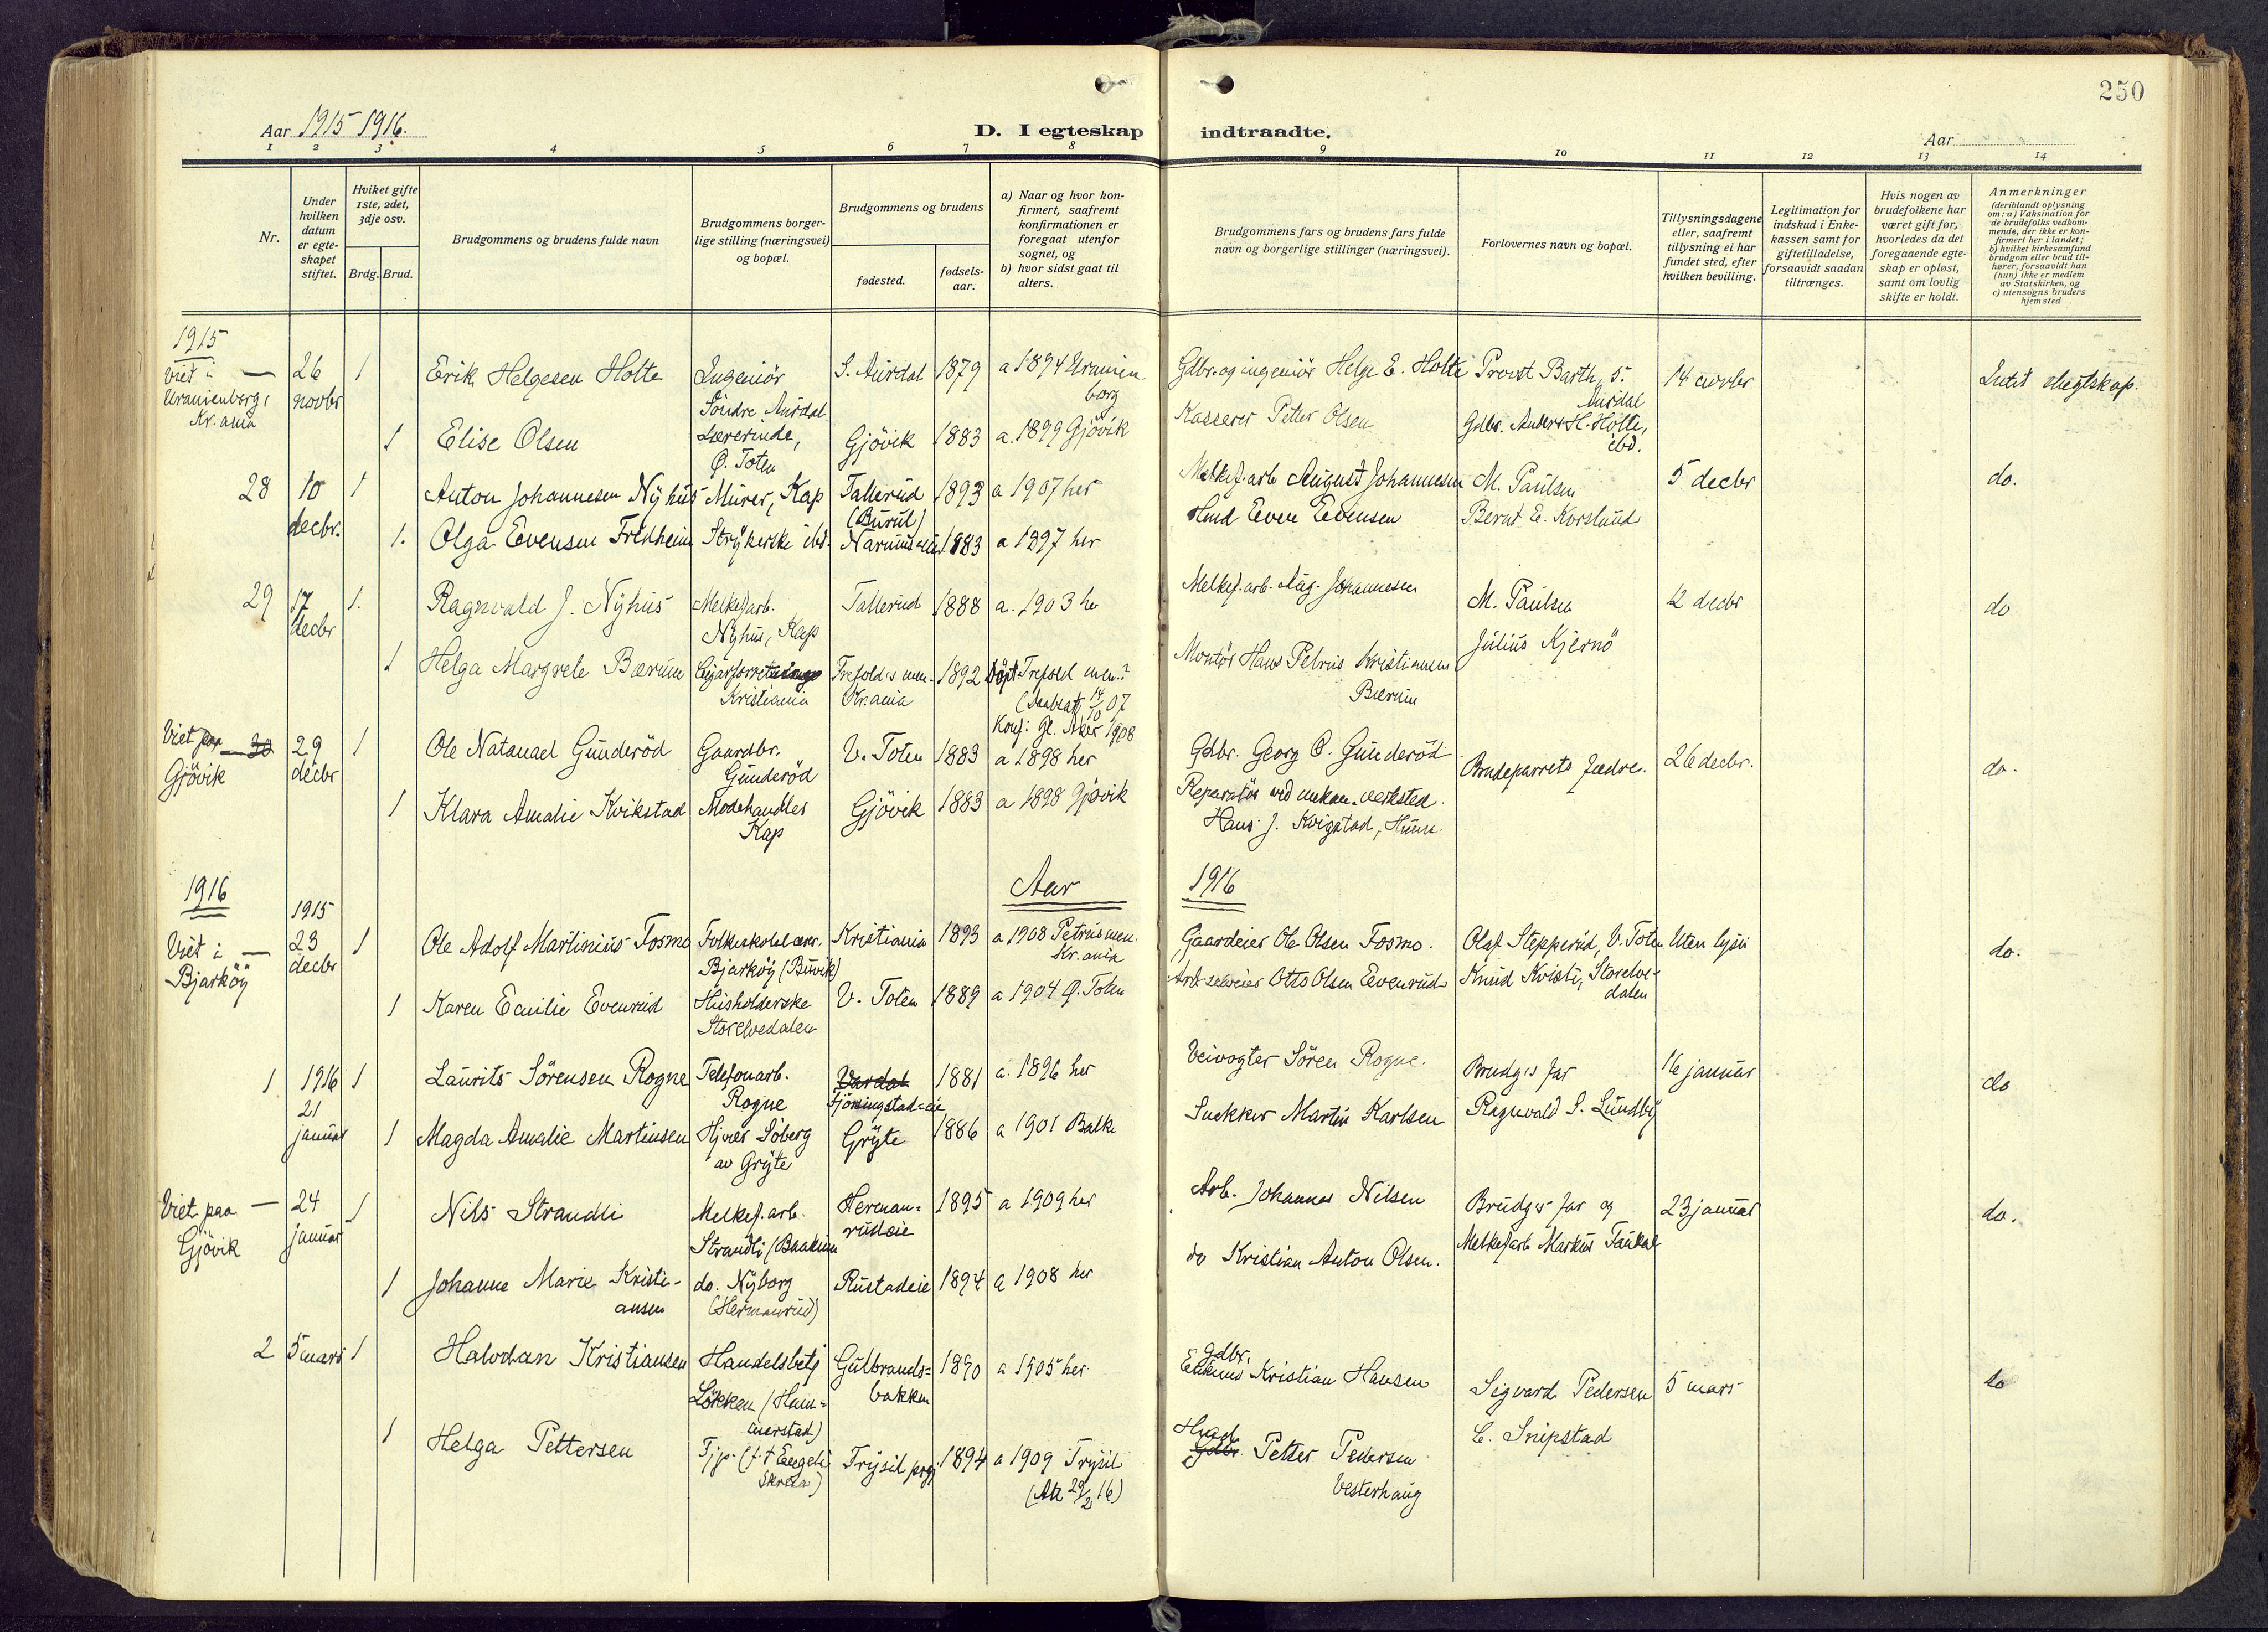 250
Aar 1915-1916.
D. I egteskap indtraadte.
Aar
1 2 3 4 5 6 7 8 9 10 11 12 13 14
Nr.
Under hvilken datum er egteskapet stiftet.
Hviket gifte 1ste, 2det, 3dje osv.
Brdg. Brud.
Brudgommens og brudens fulde navn
Brudgommens borgerlige stilling (næringsvei) og bopæl.
Brudgommens og brudens
fødested.
fødselsaar.
a) Naar og hvor konfirmert, saafremt konfirmationen er foregaat utenfor sognet, og
b) hvor sidst gaat til alters.
Brudgommens fars og brudens fars fulde navn og borgerlige stillinger (næringsvei).
Forlovernes navn og bopæl.
Tillysningsdagene eller, saafremt tillysning ei har fundet sted, efter hvilken bevilling.
Legitimation for indskud i Enkekassen samt for giftetilladelse, forsaavidt saadan tiltrænges.
Hvis nogen av brudefolkene har været gift før, hvorledes da det foregaaende egteskap er opløst, samt om lovlig skifte er holdt.
Anmerkninger (deriblandt oplysning om: a) Vaksination for de brudefolks vedkommende, der ikke er konfirmert her i landet; b) hvilket kirkesamfund brudgom eller brud tilhører, forsaavidt han (hun) ikke er medlem av Statskirken, og c) utensogns bruders hjemsted
1915
Viet i Uranienborg, Kr.ania — 26 novbr 1 Erik Helgesen Holte Ingeniør Søndre Aurdal S. Aurdal 1879 a 1894 Uranienborg Gdbr. og ingeniør Helge E. Holte Provst Barth, S. Aurdal 14 novbr Intet slegtskap.
1 Elise Olsen Lærerinde, Ø. Toten Gjövik 1883 a. 1899 Gjövik Kasserer Petter Olsen Gdbr. Anders H. Holte, ibd.
28 10 decbr. 1 Anton Johannesen Nyhus Murer, Kap Tallerud (Burul) 1893 a 1907 her Melkef.arb August Johannesen M. Paulsen 5 decbr do.
1. Olga Evensen Fredheim Strykerske ibd. 1883 a 1897 her Hmd Even Evensen Bernt E. Korslund
29 17 decbr 1. Ragnvald J. Nyhus Melkef.arb. Nyhus, Kap Tallerud 1888 a. 1903 her Melkef.arb. Aug. Johannesen M. Paulsen 12 decbr do
1 Helga Margrete Bærum Kristiania Trefold.s men. Kr.ania 1892 Döpt Trefold men.? (Daabsatt. 14/10 07 Konf: Gl. Aker 1908 Montør Hans Petrus Kristiansen Bærum Julius Kjernö
Viet paa Gjövik — 30 29 decbr 1 Ole Natanael Günderöd Gaardbr. Gunderöd V. Toten 1883 a 1898 her Gdbr. Georg O. Gunderöd Brudeparrets fædre. 26 decbr. do.
1 Klara Amalie Kvikstad Modehandler Kap Gjövik 1883 a 1898 Gjövik Reparatör ved mekan. verksted. Hans J. Kvigstad, Hunn.
1916 Aar 1916
Viet i Bjarköy — 1915 23 decbr 1 Ole Adolf Martinius Fosmo Folkeskolelærer. Bjarköy (Buvik) Kristiania 1893 a 1908 Petrus men. Kr.ania Gaardeier Ole Olsen Fosmo. Olaf Stepperud, V. Toten Uten lysn do.
1 Karen Emilie Evenrud Husholderske Storelvedalen V. Toten 1889 a 1904 Ø. Toten Otto Olsen Evenrud Knud Kvisti, Storelvedalen
1 1916 21 januar 1 Laurits Sörensen Rogne Telefonarb. Rogne Vardal Fjösingstad=eie 1881 a. 1896 her Veivogter Sören Rogne. Brudg.s far 16 januar do
1 Magda Amalie Martinsen Hjvær Soberg av Gryte Gryte 1886 a 1901 Balke Snekker Martin Karlsen Ragnvald S. Lundby
Viet paa Gjövik — 24 januar 1 Nils Strandli Melkef.arb. Strandli (Braakum Hermanrudeie 1895 a 1909 her Arb. Johannes Nilsen Brudg.s far og 23 januar do.
1 Johanne Marie Kristiansen do. Nyborg (Hermanrud) Rustadeie 1894 a 1908 her do Kristian Anton Olsen. Melkefarb Markus Faukal
2 5 mars 1 Halvdan Kristiansen Handelsbetj Lökken (Hammerstad) Gulbrandsbakken 1890 a 1905 her Gdbr. Kristian Hansen Sigvard Pedersen 5 mars do
1 Helga Pettersen Tjp. Trysil prgj 1894 a 1909 Trysil (Att 29/2 16) Hmd Gdbr. Petter Pedersen Vesterhaug C. Snipstad